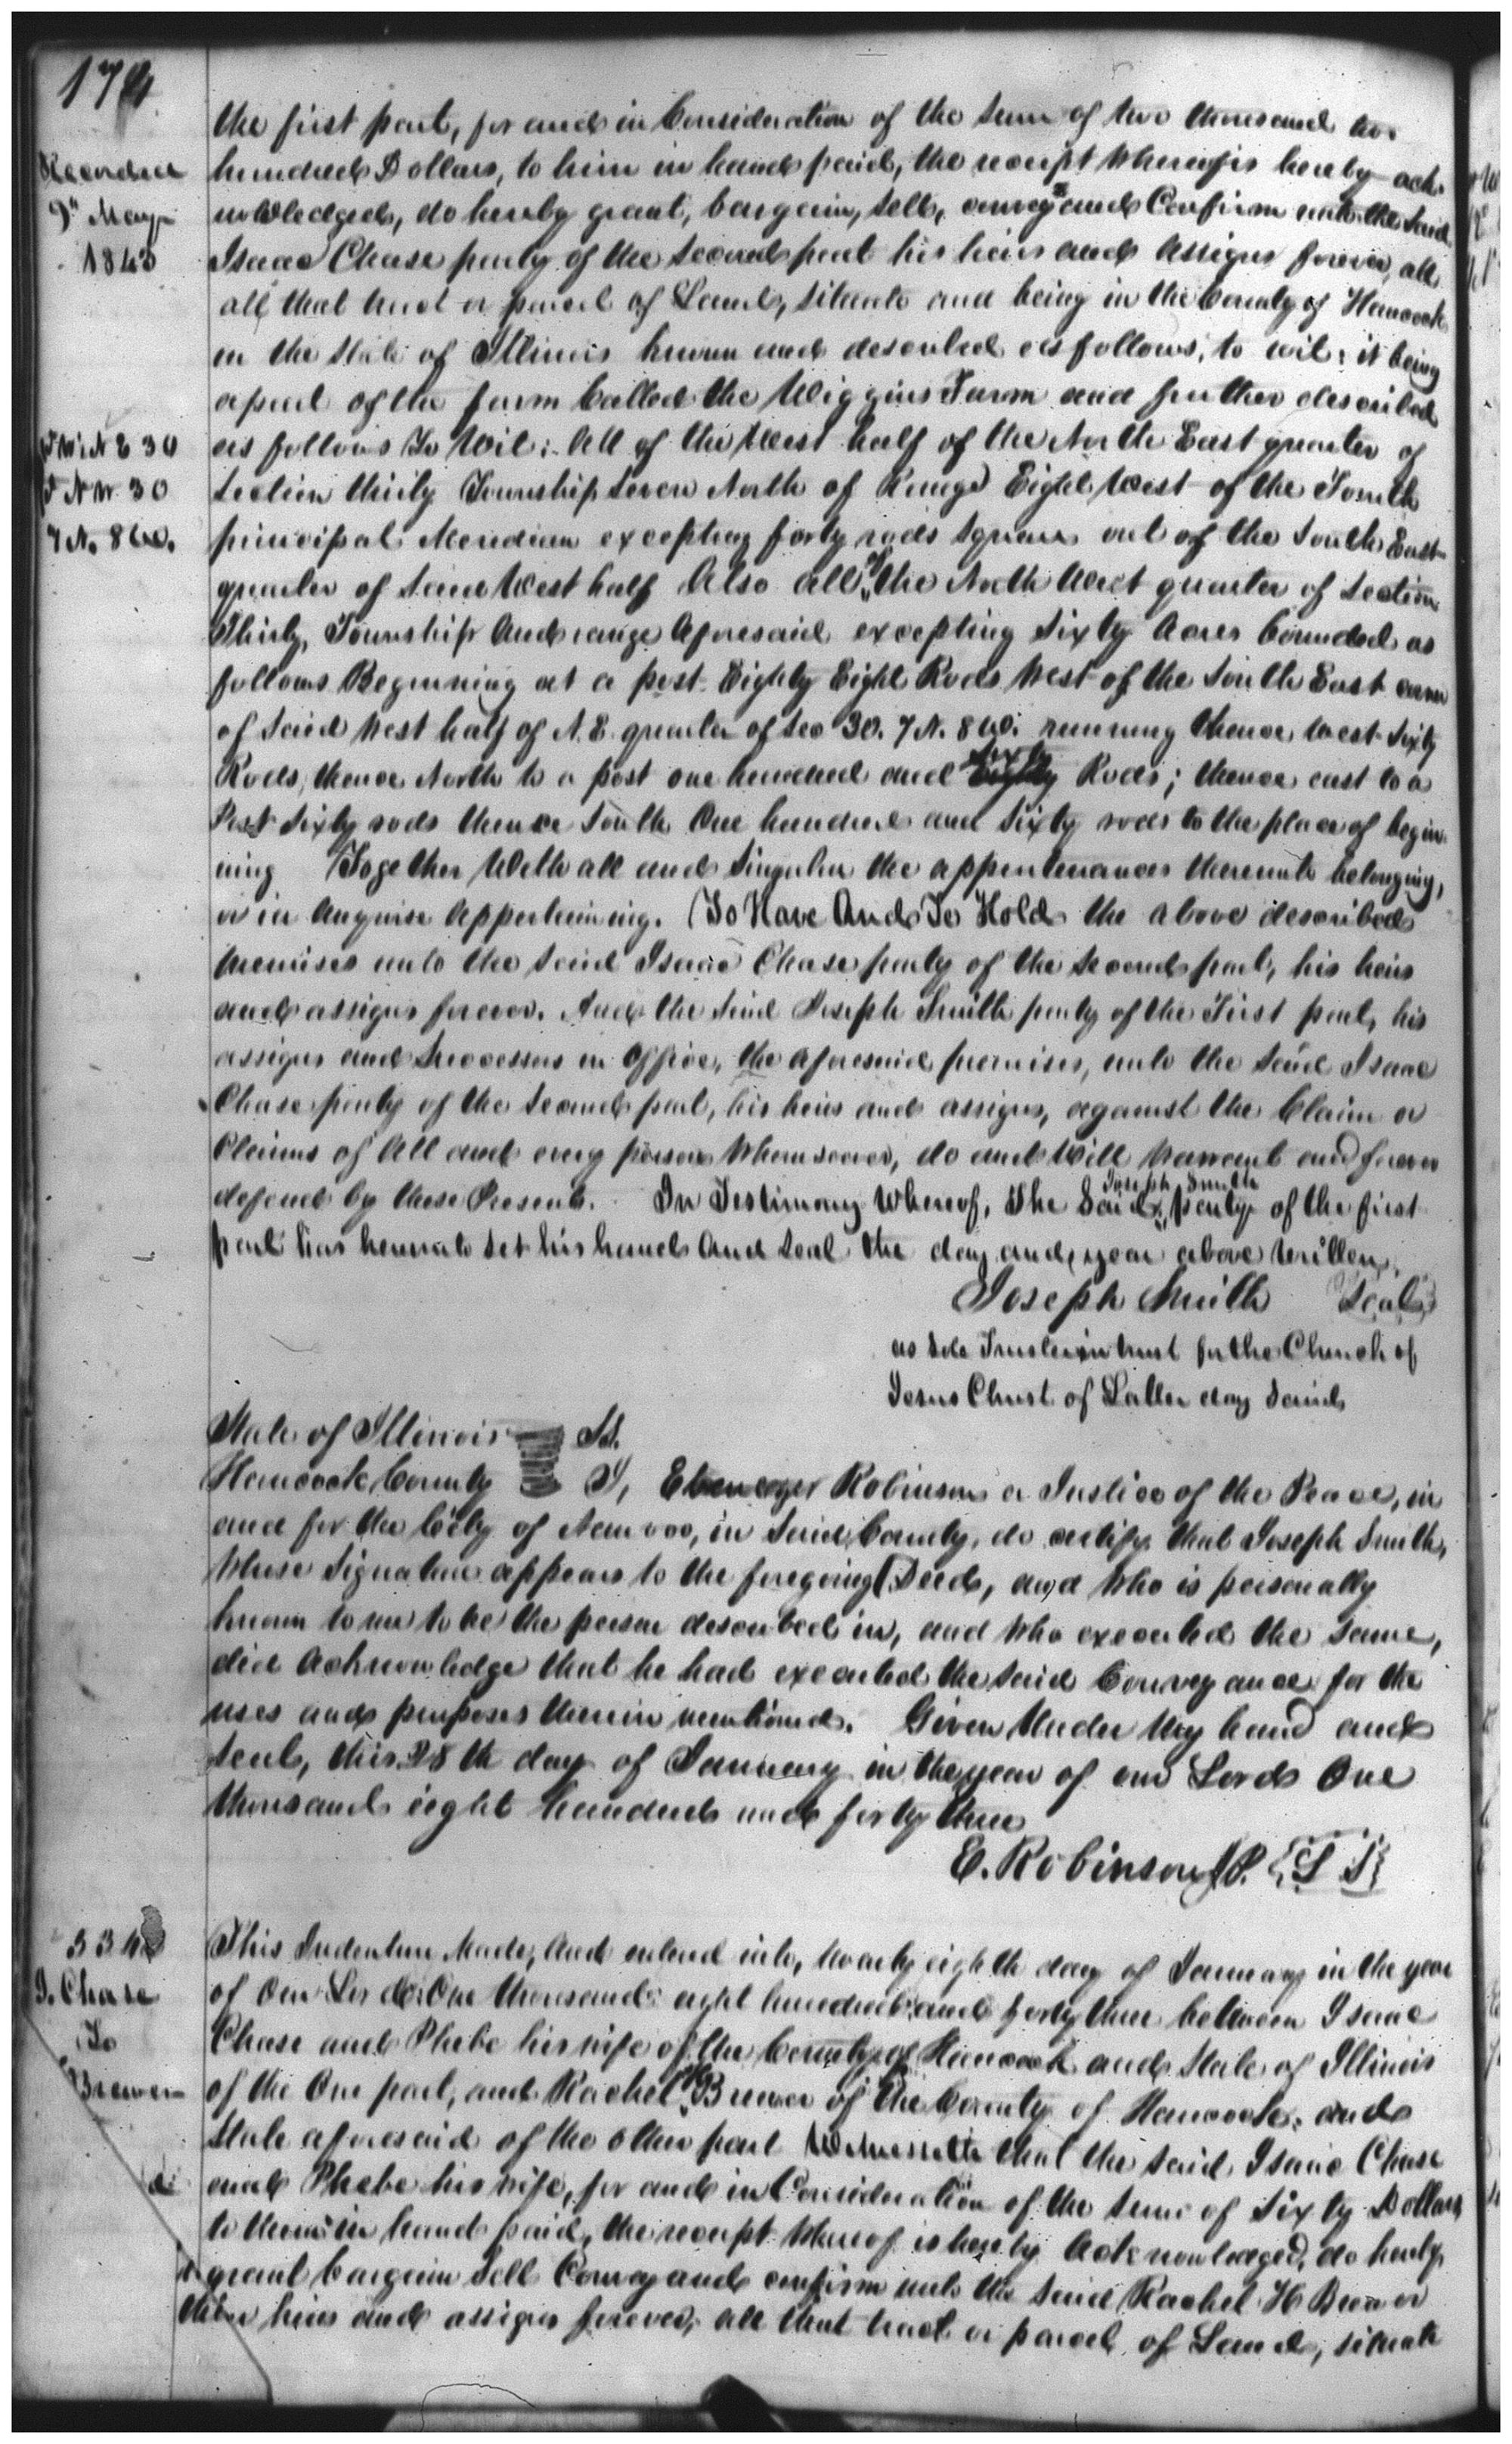 174
Recorded
9" May
1843
the first part, for and in Consideration of the Sum of two thousand two
hundred Dollars, to him in hand paid, the receipt whereof is hereby ack
nowledged, do hereby grant, bargain, sell, convey and Confirm unto the Said
Isaac Chase party of the Second part his heirs and Assigns forever, all
all that tract or parcel of Land, Situate and being in the County of Hancock
in the State of Illinois known and described as follows, to wit: it being
a part of the farm Called the Wiggins Farm and further described
Pt W½ N E 30
Pt N W 30
7 N. 8 W.
as follows To Wit: All of the West half of the North East quarter of
Section thirty Township Seven North of Range Eight West of the Fourth
principal Meridian excepting forty rods Square out of the South East
quarter of Said West half Also all of the North West quarter of Section
Thirty, Township And range Aforesaid excepting Sixty Acres bounded as
follows Beginning at a post Eighty Eight Rods West of the South East corner
of Said West half of N. E. quarter of Sec 30. 7 N. 8 W. running thence West Sixty
Rods, thence North to a post one hundred and Sixty Rods; thence east to a
Post Sixty rods thence South One hundred and Sixty rods to the place of begin
ning Together With all and Singular the appertenances thereunto belonging,
or in Anywise Appertaining. To Have And To Hold the above described
premises unto the Said Isaac Chase party of the Second part, his heirs
and assigns forever. And the Said Joseph Smith party of the First part, his
assigns and Successors in Office, the aforesaid premises, unto the Said Isaac
Chase party of the Second part, his heirs and assigns, against the Claim or
Claims of All and every person Whomsoever, do and Will Warrant and forever
defend by these Presents. In Testimony Whereof, The Said Joseph Smith party of the first
part has hereunto Set his hand And Seal the day and year above Written.
Joseph Smith Seal
as Sole Trustee in trust for the Church of
Jesus Christ of Latter day Saints
State of Illinois Ss.
Hancock County I, Ebenezer Robinson a Justice of the Peace, in
and for the City of Nauvoo, in Said County, do certify that Joseph Smith,
Whose Signature appears to the foregoing Deed, and Who is personally
known to me to be the person described in, and Who executed the Same,
did Acknowledge that he had executed the Said Conveyance for the
uses and purposes therein mentioned. Given Under My hand and
Seal, this 28th day of January in the year of our Lord One
thousand eight hundred and forty three
E. Robinson J P. {L S}
I. Chase
To
Brewer
This Indenture Made, And entered into, twenty eighth day of January in the year
of Our Lord One thousand eight hundred and forty three between Isaac
Chase and Phebe his wife of the County of Hancock and State of Illinois
of the One part, and Rachel H Brewer of the County of Hancock, and
State aforesaid of the other part Witnesseth that the Said Isaac Chase
and Phebe his wife, for and in Consideration of the Sum of Sixty Dollars
to them in hand paid, the receipt Whereof is hereby Acknowledged, do hereby
grant bargain Sell Convey and confirm unto the Said Rachel H Brewer
her heirs and assigns forever, all that tract or parcel of Land, situate